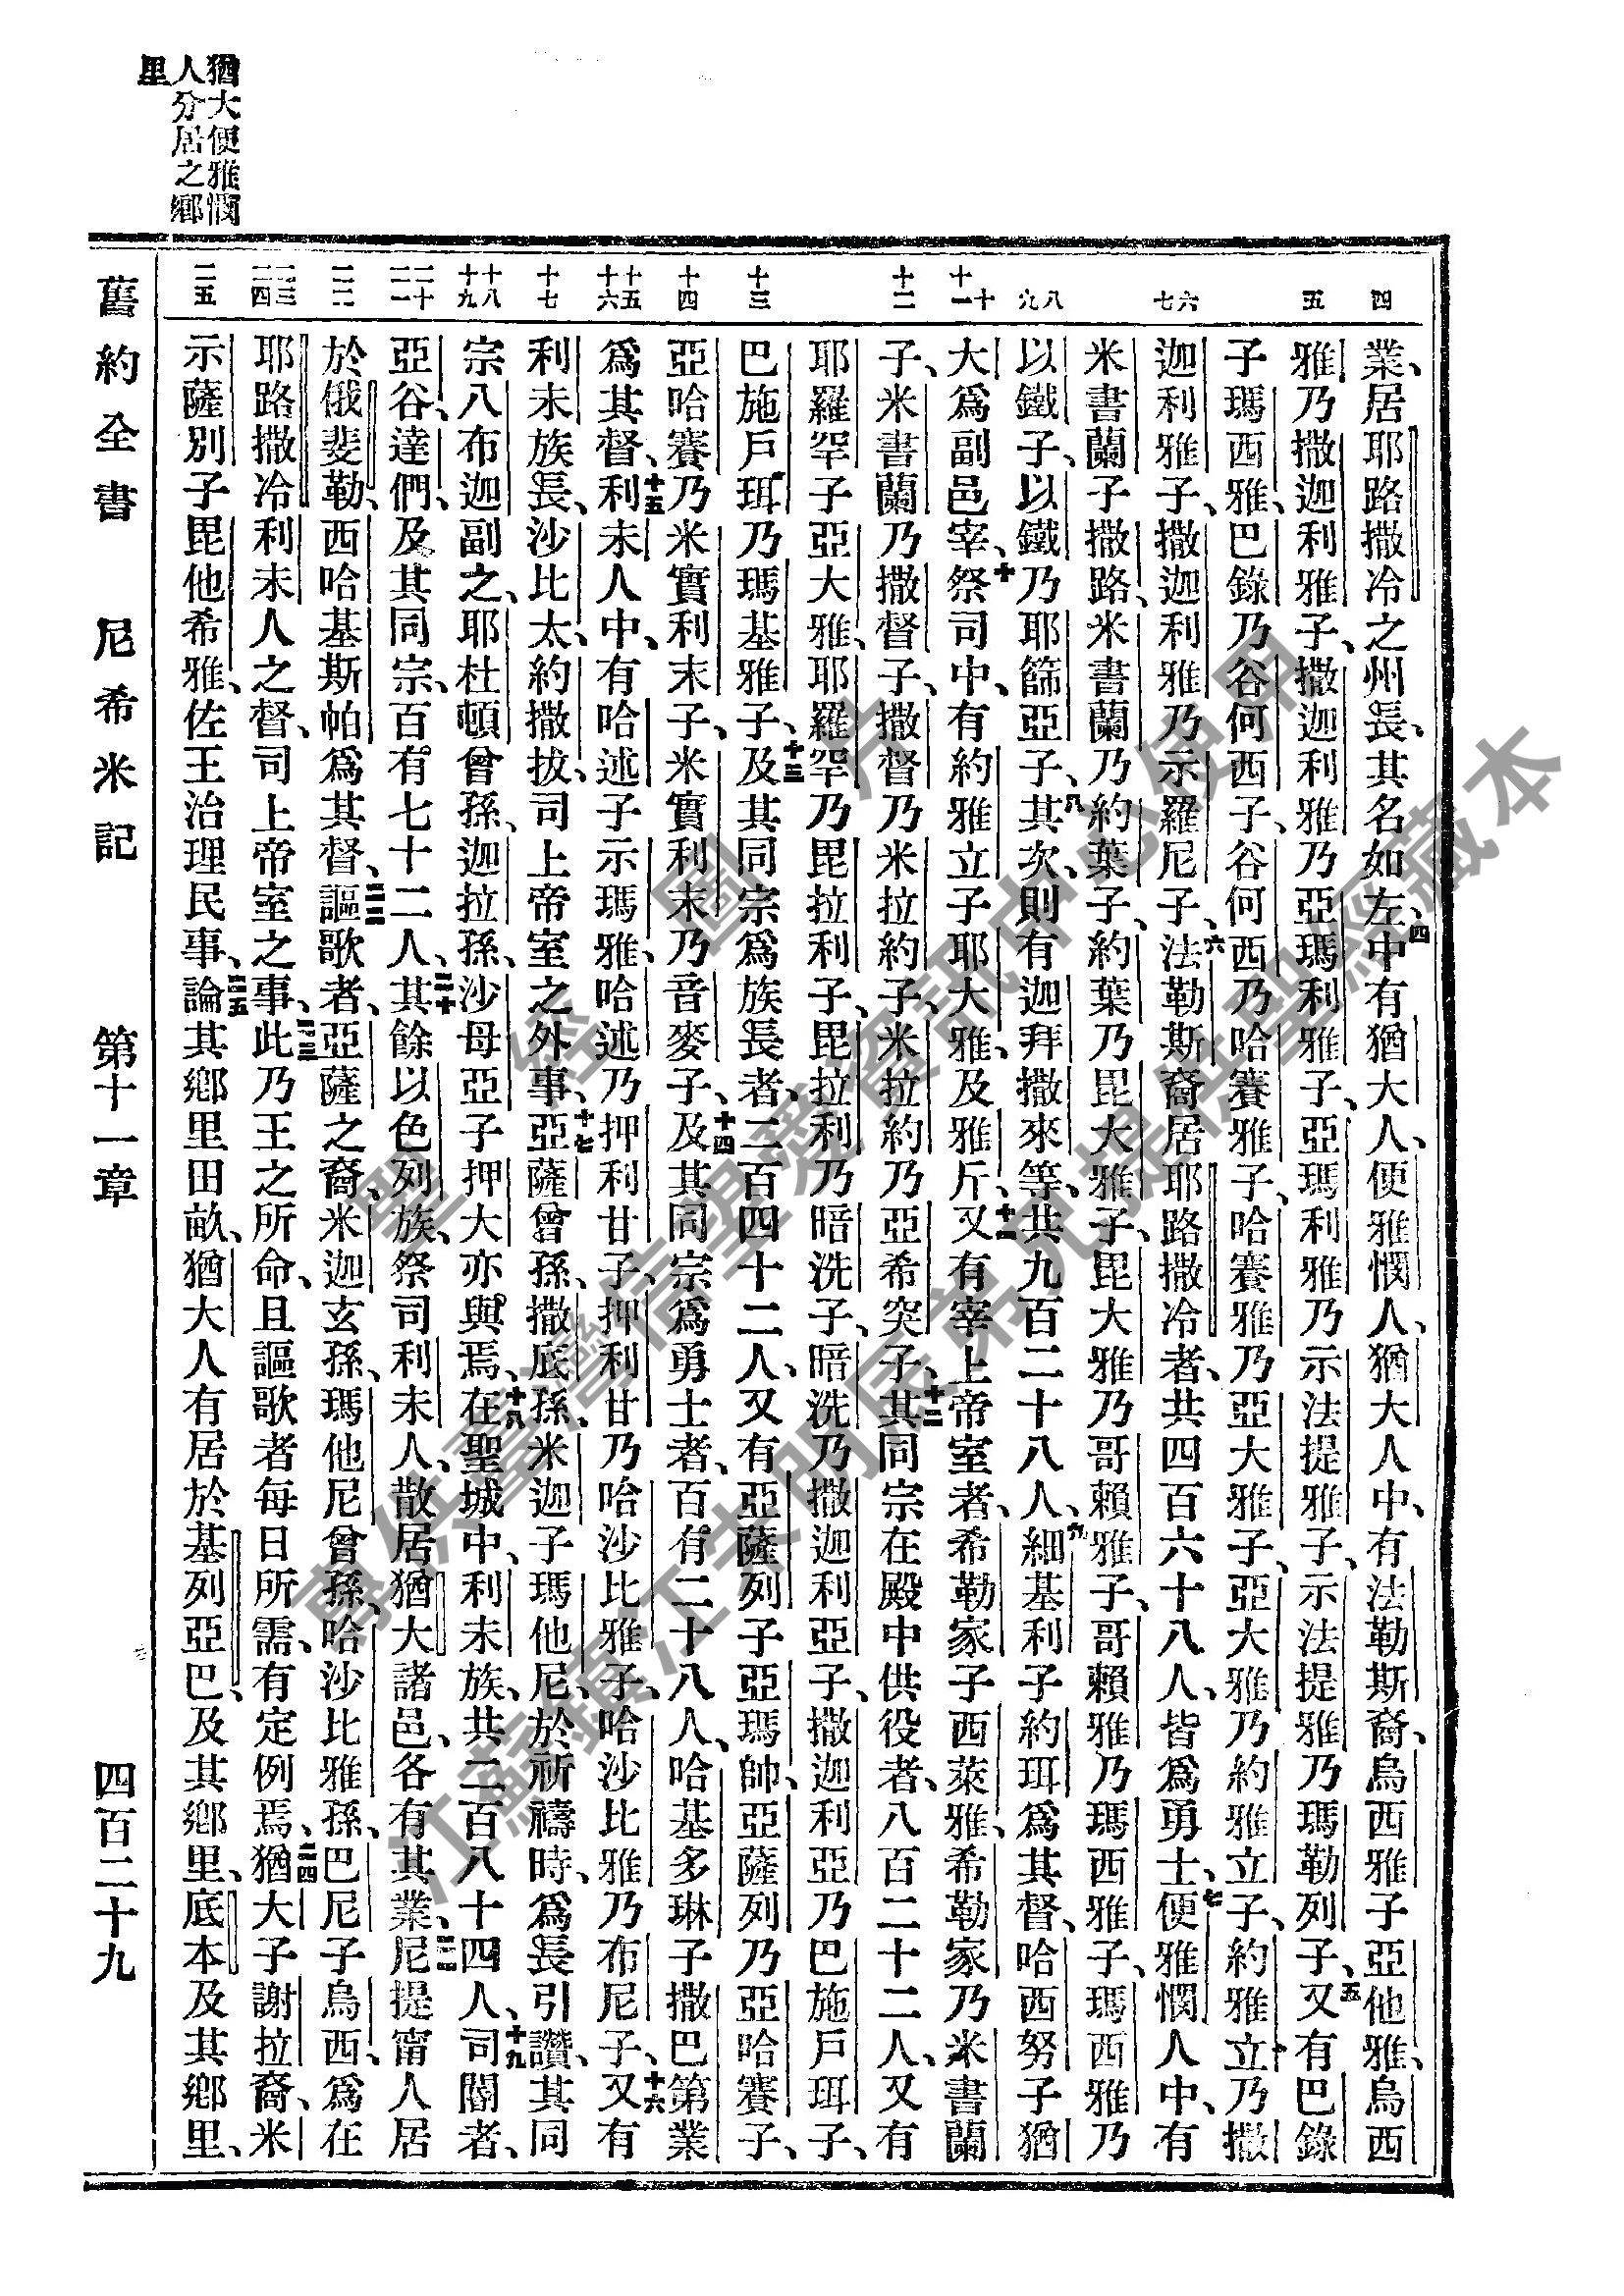 猶大便雅憫
人分居之鄉
里
四
五
六
七
八
九
十
十一
十二
十三
十四
十五
十六
十七
十八
十九
二十
二一
二二
二三
二四
二五
業、居耶路撒冷之州長、其名如左、四中有猶大人、便雅憫人、猶大人中、有法勒斯裔、烏西雅子亞他雅、烏西
雅乃撒迦利雅子、撒迦利雅乃亞瑪利雅子、亞瑪利雅乃示法提雅子、示法提雅乃瑪勒列子、五又有巴錄
子瑪西雅、巴錄乃谷何西子、谷何西乃哈賽雅子、哈賽雅乃亞大雅子、亞大雅乃約雅立子、約雅立乃撒
迦利雅子、撒迦利雅乃示羅尼子、六法勒斯裔居耶路撒冷者、共四百六十八人、皆爲勇士、七便雅憫人中、有
米書蘭子撒路、米書蘭乃約葉子、約葉乃毘大雅子、毘大雅乃哥賴雅子、哥賴雅乃瑪西雅子、瑪西雅乃
以鐵子、以鐵乃耶篩亞子、八其次、則有迦拜撒來等、共九百二十八人、九細基利子約珥爲其督、哈西努子猶
大爲副邑宰、十祭司中、有約雅立子耶大雅、及雅斤、十一又有宰上帝室者、希勒家子西萊雅、希勒家乃米書蘭
子、米書蘭乃撒督子、撒督乃米拉約子、米拉約乃亞希突子、十二其同宗在殿中供役者、八百二十二人、又有
耶羅罕子亞大雅、耶羅罕乃毘拉利子、毘拉利乃暗洗子、暗洗乃撒迦利亞子、撒迦利亞乃巴施戶珥子、
巴施戶珥乃瑪基雅子、十三及其同宗爲族長者、二百四十二人、又有亞薩列子亞瑪帥、亞薩列乃亞哈賽子、
亞哈賽乃米實利末子、米實利末乃音麥子、十四及其同宗爲勇士者、百有二十八人、哈基多琳子撒巴第業
爲其督、十五利未人中、有哈述子示瑪雅、哈述乃押利甘子、押利甘乃哈沙比雅子、哈沙比雅乃布尼子、十六又有
利未族長、沙比太、約撒拔、司上帝室之外事、十七亞薩曾孫、撒底孫、米迦子瑪他尼、於祈禱時、爲長引讚、其同
宗八布迦副之、耶杜頓曾孫、迦拉孫、沙母亞子押大亦與焉、十八在聖城中、利未族、共二百八十四人、十九司閽者、
亞谷、達們、及其同宗、百有七十二人、二十其餘以色列族、祭司利未人、散居猶大諸邑、各有其業、二一尼提甯人居
於俄斐勒、西哈基斯帕爲其督、二二謳歌者、亞薩之裔、米迦玄孫、瑪他尼曾孫、哈沙比雅孫、巴尼子烏西、爲在
耶路撒冷利未人之督、司上帝室之事、二三此乃王之所命、且謳歌者每日所需、有定例焉、二四猶大子謝拉裔、米
示薩別子毘他希雅、佐王治理民事、二五論其鄉里田畝、猶大人有居於基列亞巴、及其鄉里、底本及其鄉里、
舊約全書　尼希米記　第十一章　四百二十九
聖經圖片
專供臺灣信望愛資訊中心使用
江蘇鎮江朱明辰弟兄提供聖經藏本